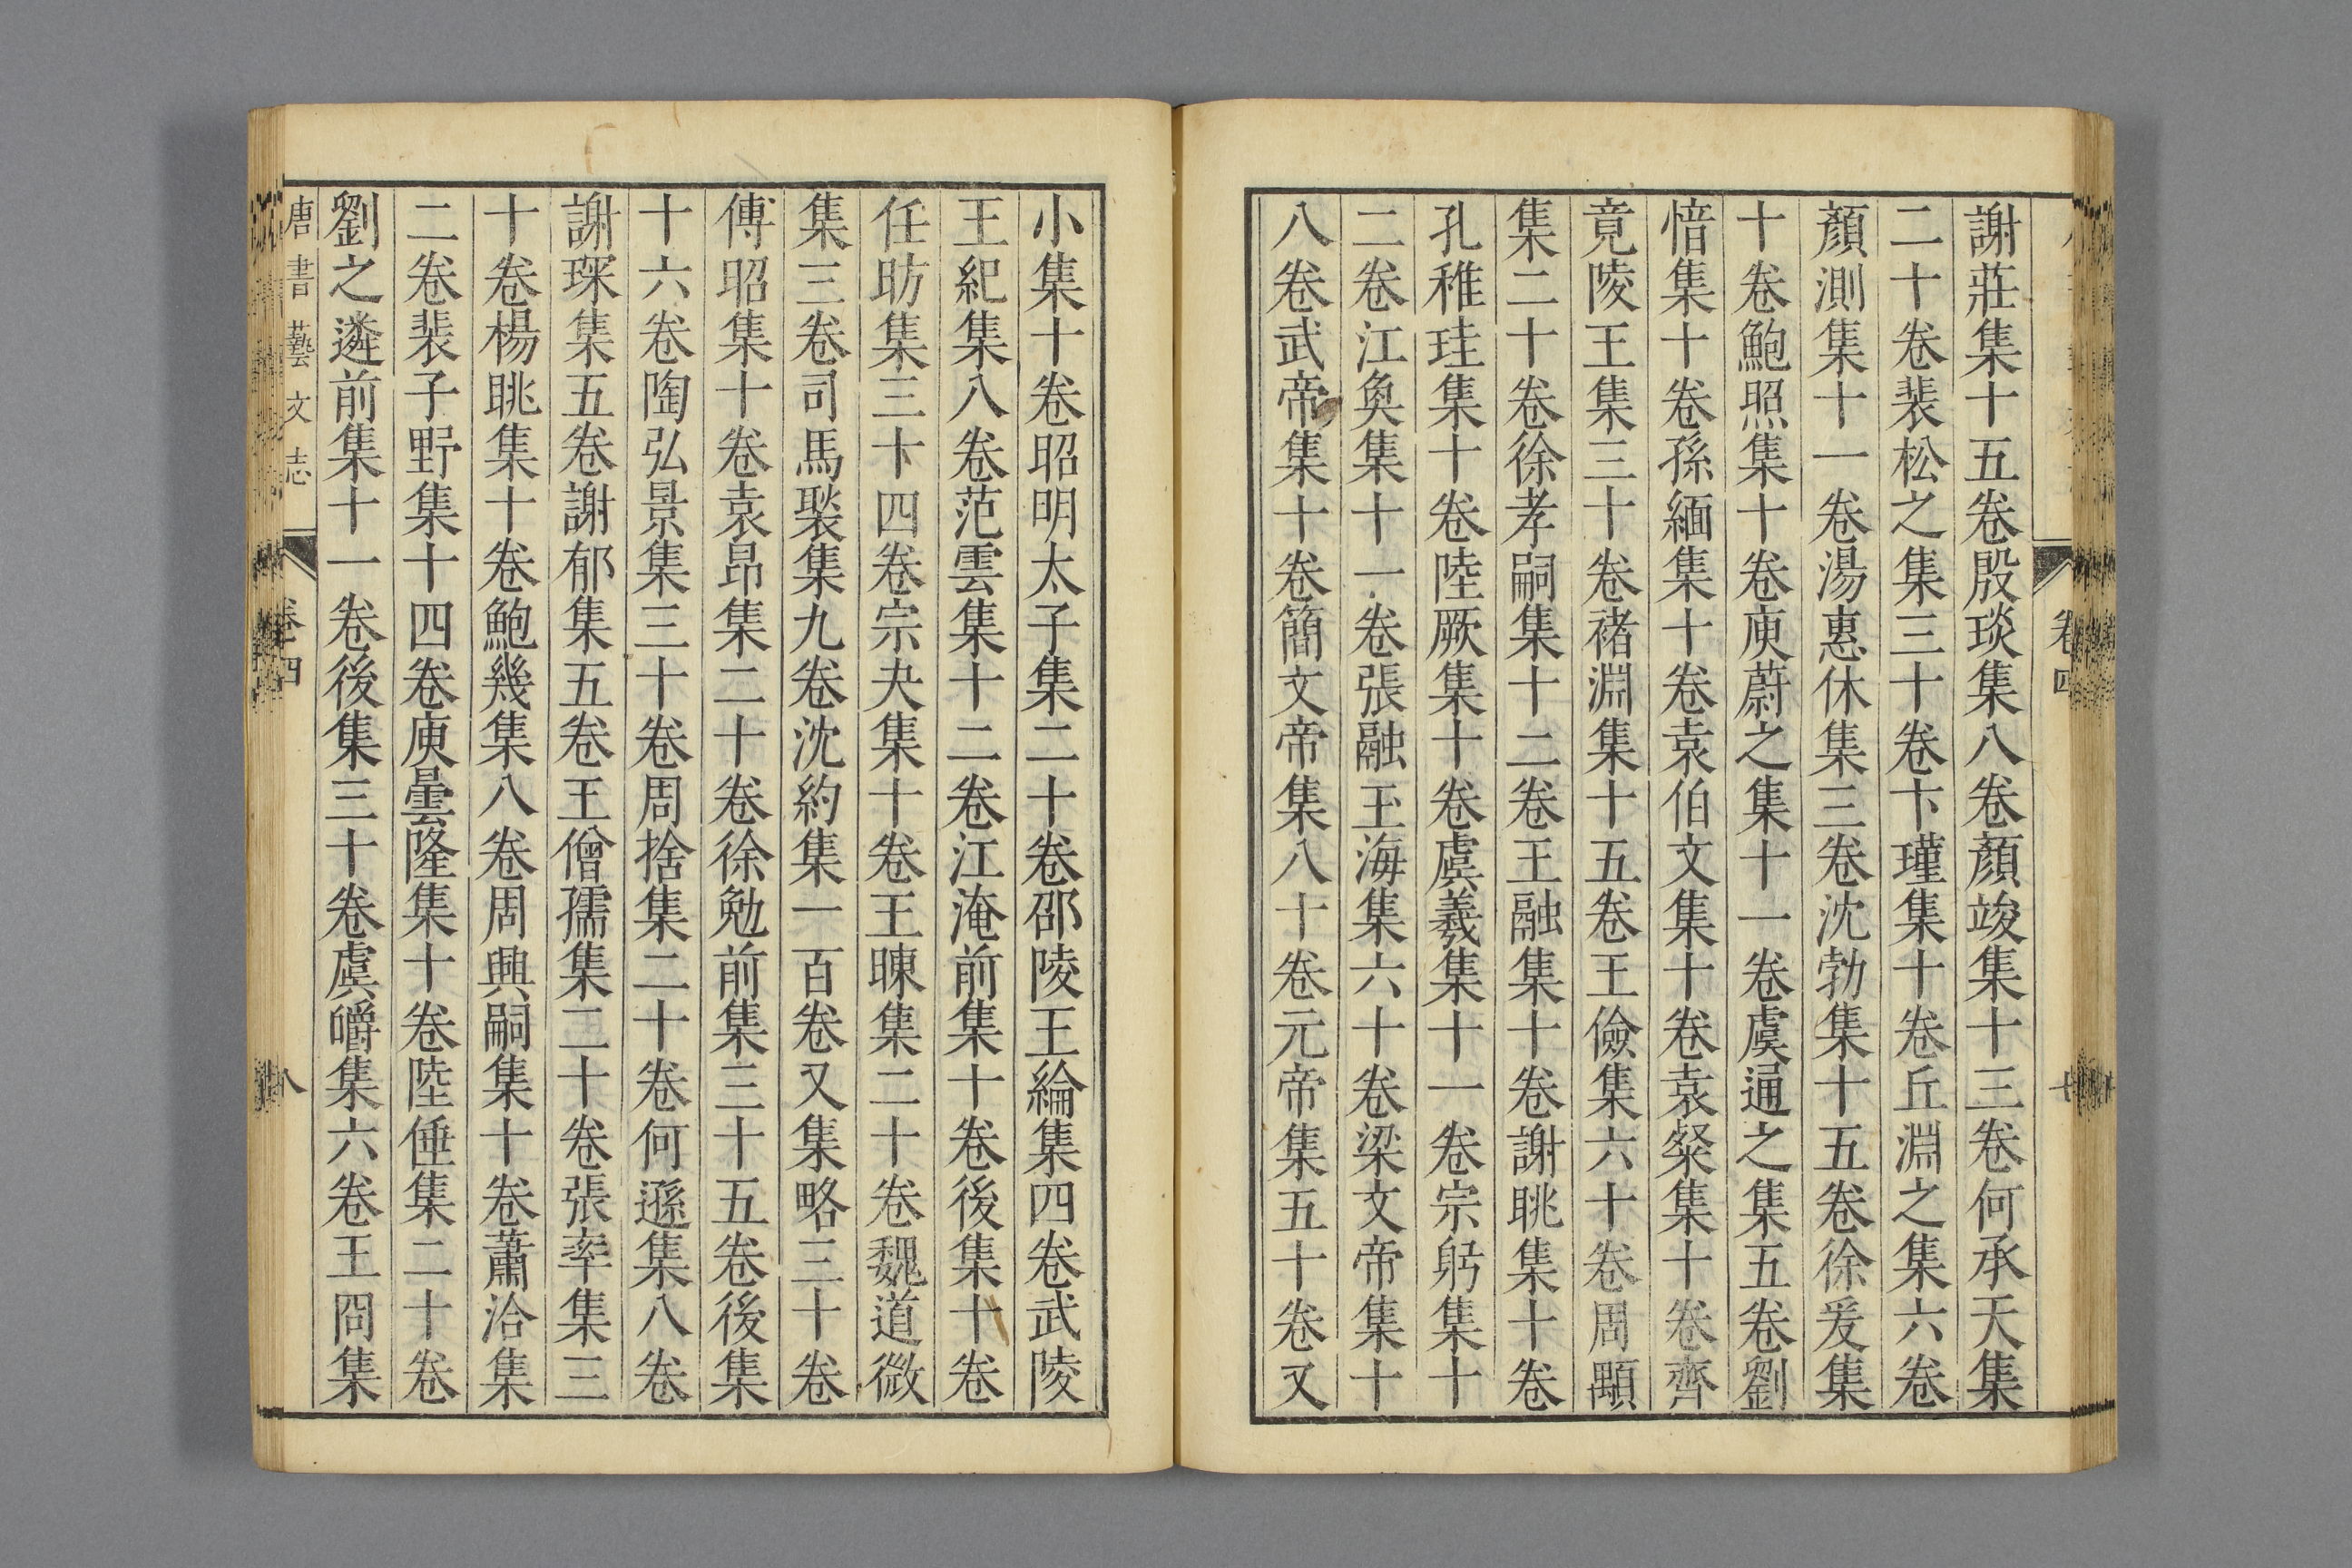 謝莊集十五卷殷琰集八卷顏竣集十三卷何承天集
二十卷裴松之集三十卷卞瑾集十卷丘淵之集六卷
顏測集十一卷湯惠休集三卷沈勃集十五卷徐爰集
十卷鮑照集十卷庾蔚之集十一卷虞通之集五卷劉
愔集十卷孫緬集十卷袁伯文集十卷袁粲集十卷齊
竟陵王集三十卷褚淵集十五卷王儉集六十卷周顒
集二十卷徐孝嗣集十二卷王融集十卷謝朓集十卷
孔稚珪集十卷陸厥集十卷虞羲集十一卷宗躬集十
二卷江奐集十一卷張融玉海集六十卷梁文帝集十
八卷武帝集十卷簡文帝集八十卷元帝集五十卷又
卷四
小集十卷昭明太子集二十卷邵陵王綸集四卷武陵
王紀集八卷范雲集十二卷江淹前集十卷後集十卷
任昉集三十四卷宗夬集十卷王暕集二十卷魏道微
集三卷司馬褧集九卷沈約集一百卷又集略三十卷
傅昭集十卷袁昂集二十卷徐勉前集三十五卷後集
十六卷陶弘景集三十卷周捨集二十卷何遜集八卷
謝琛集五卷謝郁集五卷王僧孺集二十卷張率集三
十卷楊眺集十卷鮑幾集八卷周興嗣集十卷蕭洽集
二卷裴子野集十四卷庾曇隆集十卷陸倕集二十卷
劉之遴前集十一卷後集三十卷虞㬭集六卷王冏集
唐書藝文志
卷四
八